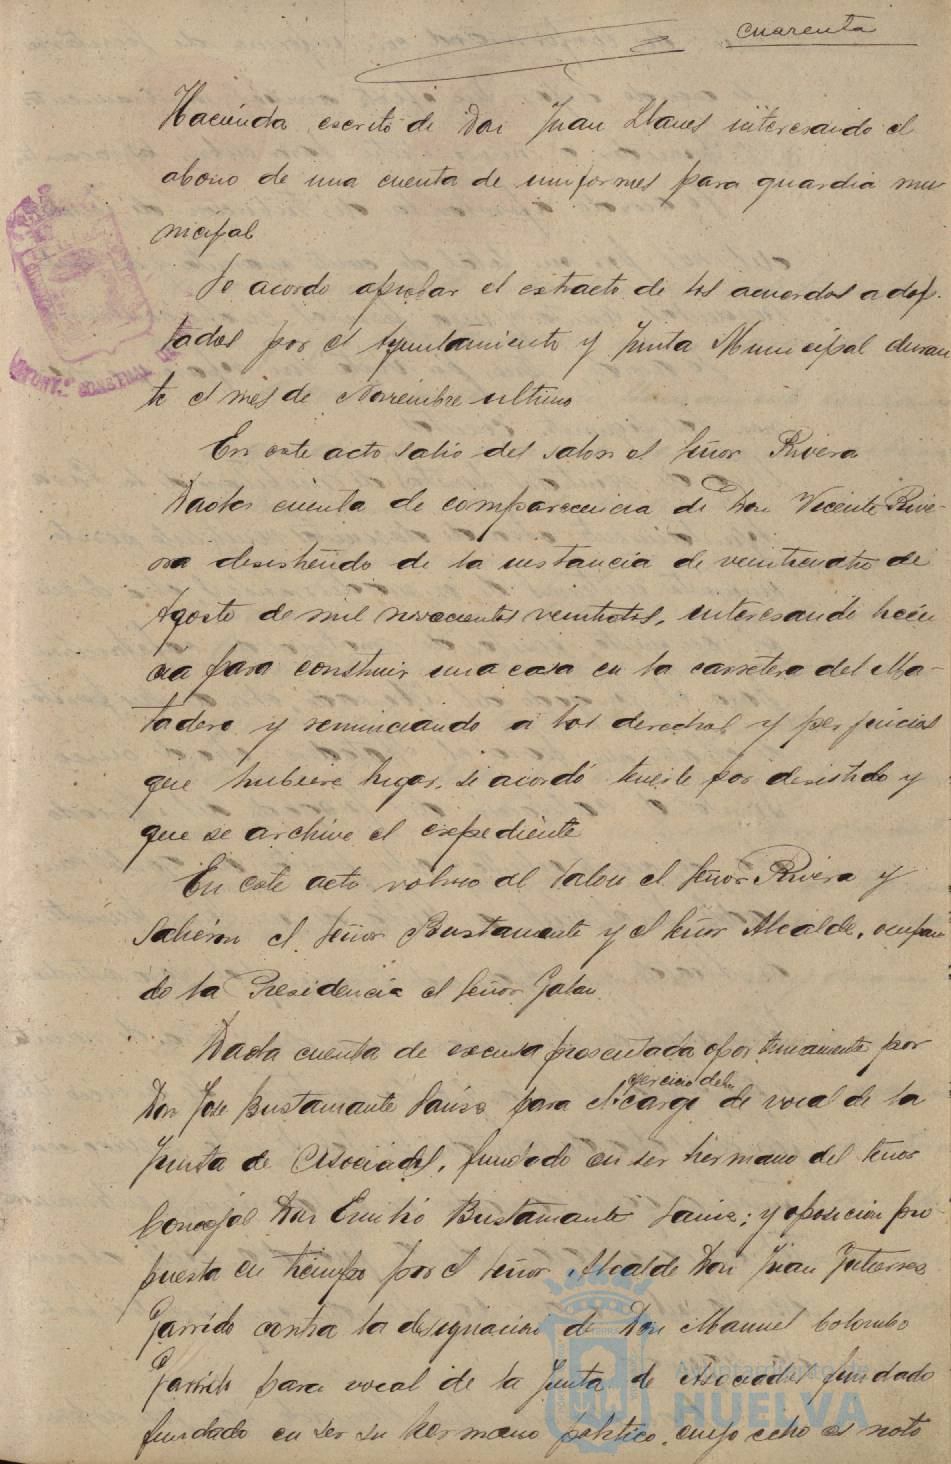 cuarenta
Hacienda escrito de Don Juan Llanes interesando el
abono de una cuenta de uniformes para guardia mu
nicipal
Se acordo aprobar el extracto de los acuerdos adop-
tados por el Ayuntamiento y Junta Municipal duran
te el mes de Noviembre ultimo
En este acto salio del salon el Señor Rivera
Dada cuenta de comparecencia de Don Vicente Rive-
ra desistiendo de la instancia de veinticuatro de
Agosto de mil novecientos veintidos, interesando licen
cia para construir una casa en la carretera del Ma-
tadero y renunciando a los derechos y perjuicios
que hubiere lugar, se acordó tenerle por desistido y
que se archive el expediente
En este acto volvio al salon el Señor Rivera y
Salieron el Señor Bustamante y el Señor Alcalde, ocupan
do la Presidencia el Señor Galan
Dada cuenta de excusa presentada oportunamente por
Don Jose Bustamante Sainz para el ejercicio del cargo de vocal de la
Junta de Asociados, fundado en ser hermano del Señor
Concejal Don Emilio Bustamante Sainz; y oposicion pro-
puesta en tiempo por el Señor Alcalde Don Juan Gutierrez
Garrido contra la designacion de Don Manuel Colombo
Garrido para vocal de la Junta de Asociados fundado
fundado en ser su hermano politico, cuyo echo es noto
AYUNT.º CONSTITUCIONAL
Ayuntamiento de
HUELVA